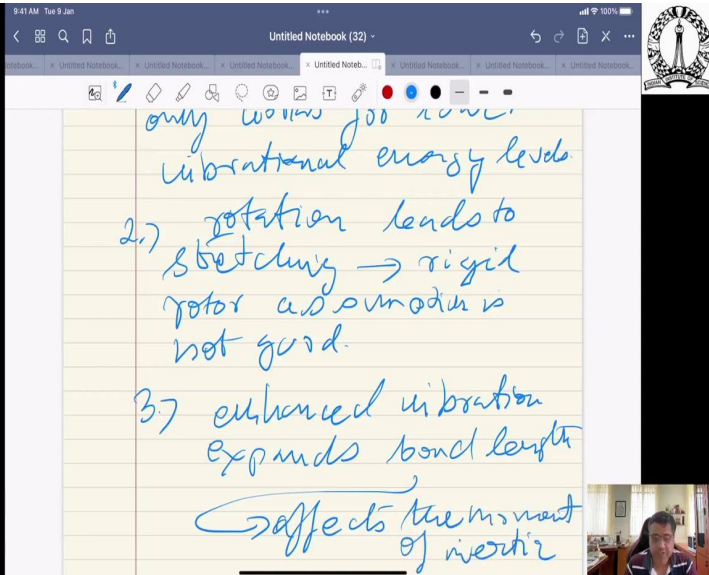 9:41 AM Tue 9 Jan
100%
Untitled Notebook (32)
Untitled Notebook... × Untitled Notebook... × Untitled Notebook... × Untitled Noteb... × Untitled Notebook... × Untitled Notebook... × Untitled Notebook...
only works for lower
vibrational energy levels.
2.) rotation leads to
stretching → rigid
rotor assumption is
not good.
3.) enhanced vibration
expands bond length
→ affects the moment
of inertia